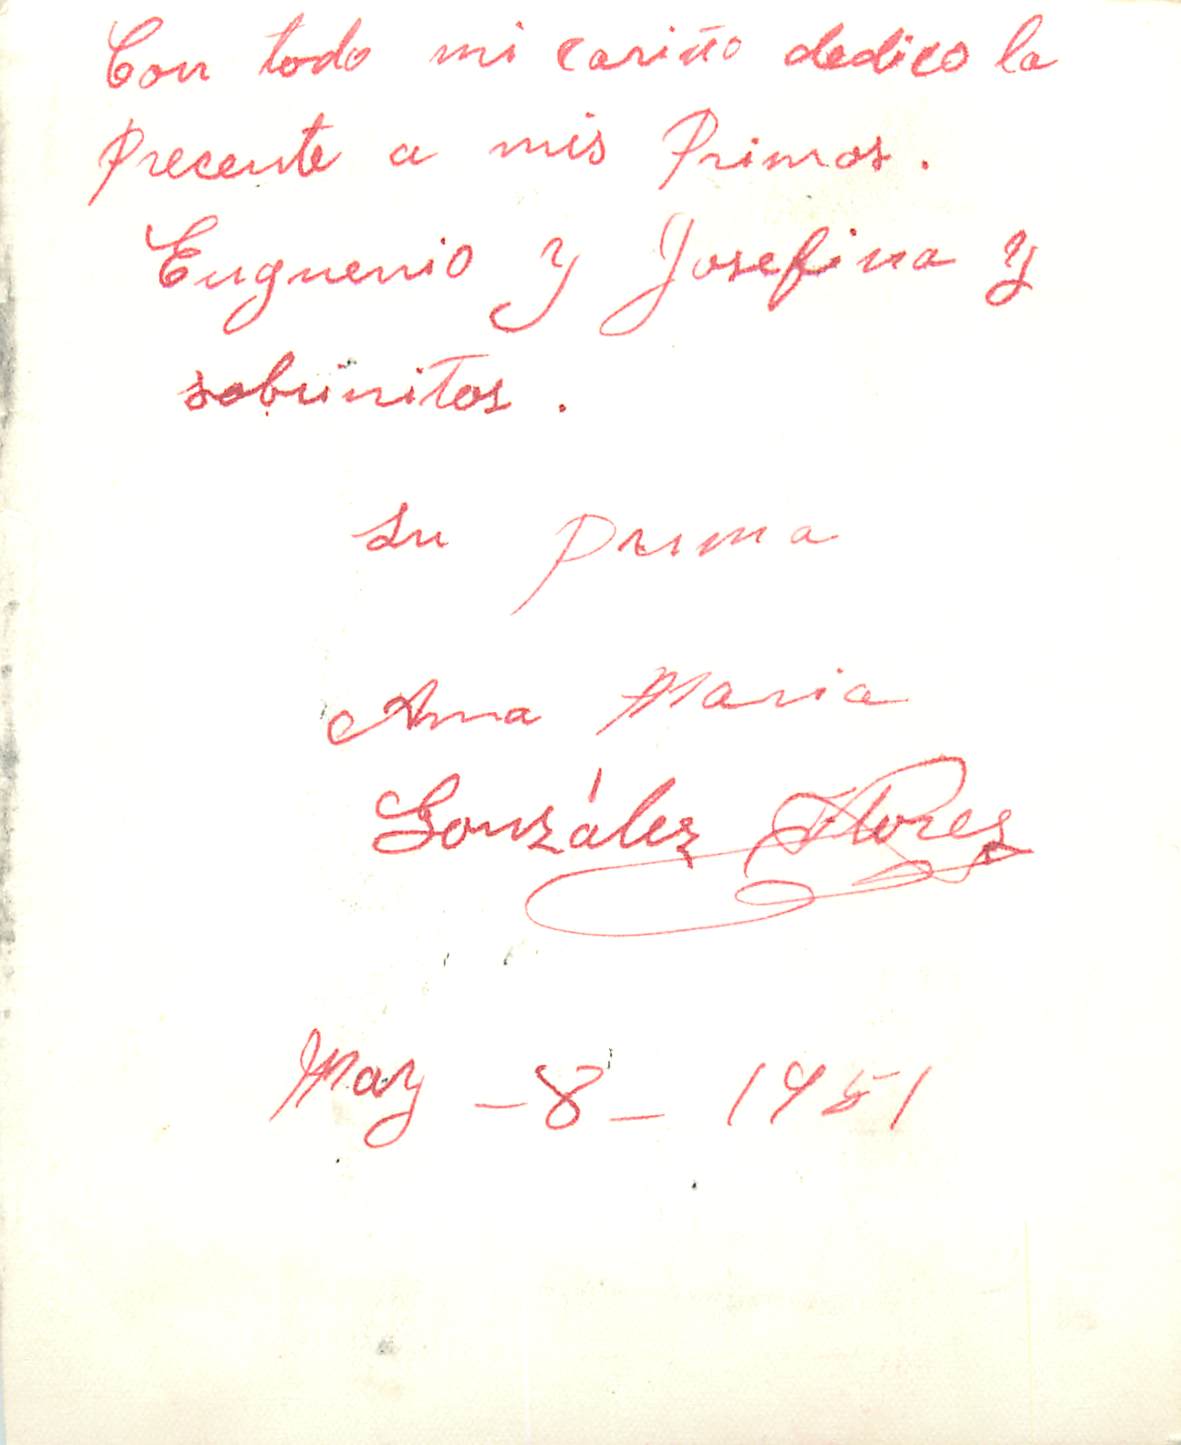 Con todo mi cariño dedico la
precente a mis Primos.
Euguenio y Josefina y
sobrinitos.
su prima
Ana Maria
González Flores
May - 8 - 1951